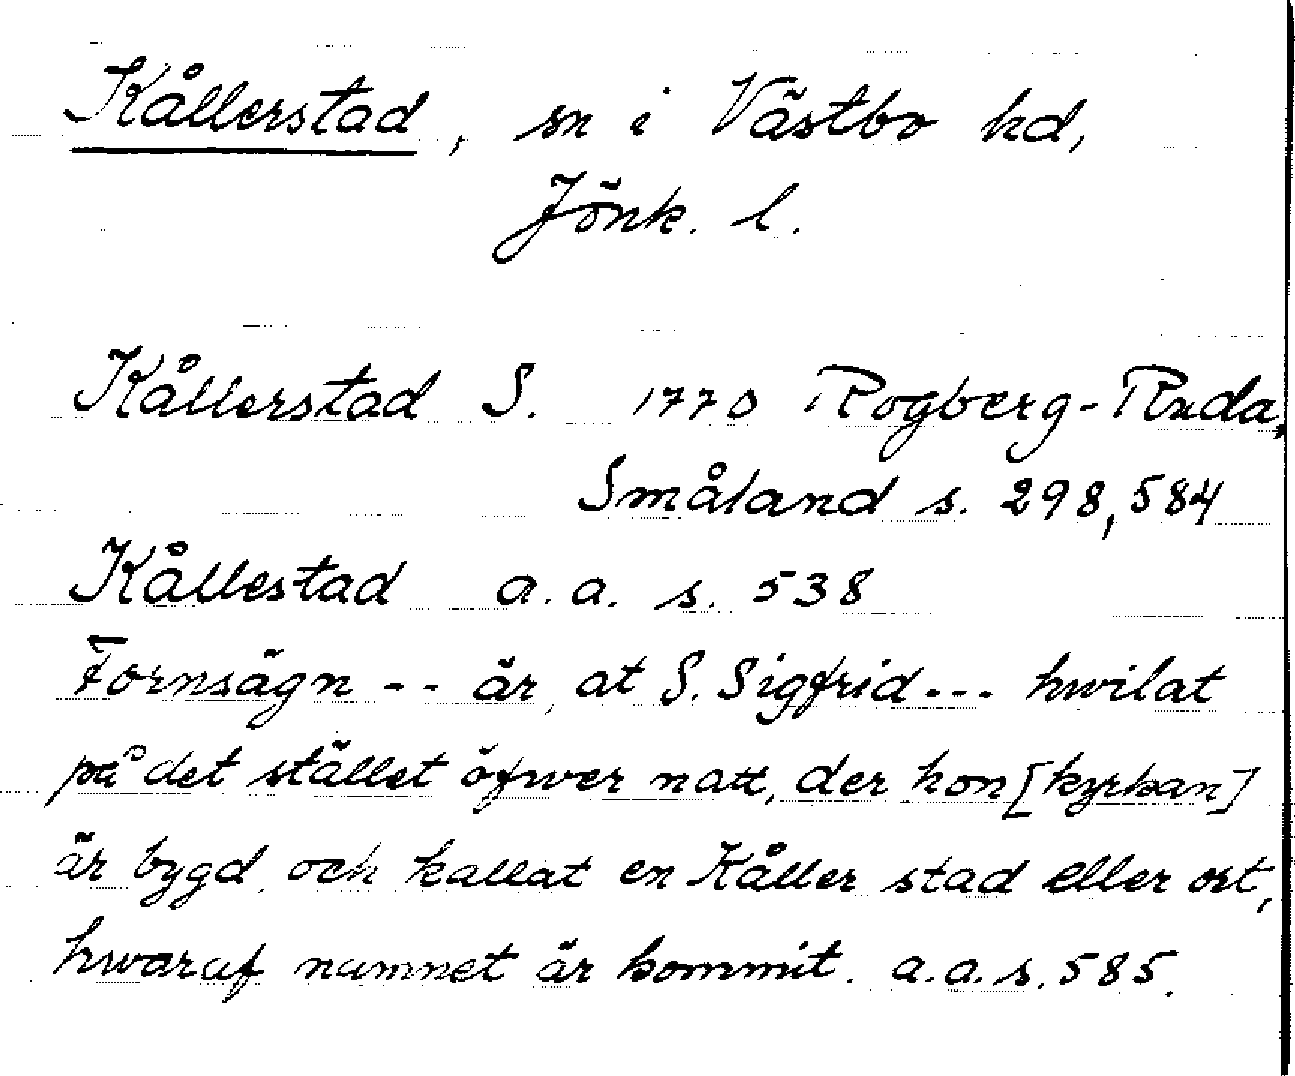 Kållerstad, sn i Västbo hd,
Jönk. l.
Kållerstad S. 1770 Rogberg-Ruda,
Småland s. 298, 584
Kållestad a.a. s. 538
Fornsägn -- är, at S. Sigfrid --- hwilat
på det stället öfwer natt, der hon [kyrkan]
är bygd, och kallat en Kåller stad eller ort,
hwaraf namnet är kommit. a.a. s. 585.